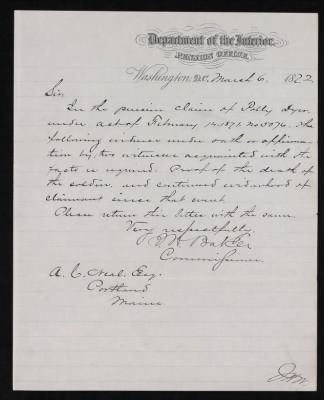 Department of the Interior,
PENSION OFFICE,
Washington, D.C., March 6, 1872
Sir,
In the pension claim of Polly Dyer,
under act of February 14, 1871 No 5076. The
following evidence under oath or affirma-
tion by two witnesses acquainted with the
facts is required. Proof of the death of
the soldier, and continued widowhood of
claimant since that event.
Please return this letter with the same.
Very respectfully
J. H. Baker
Commissioner.
A. C. Neal, Esq.
Portland
Maine